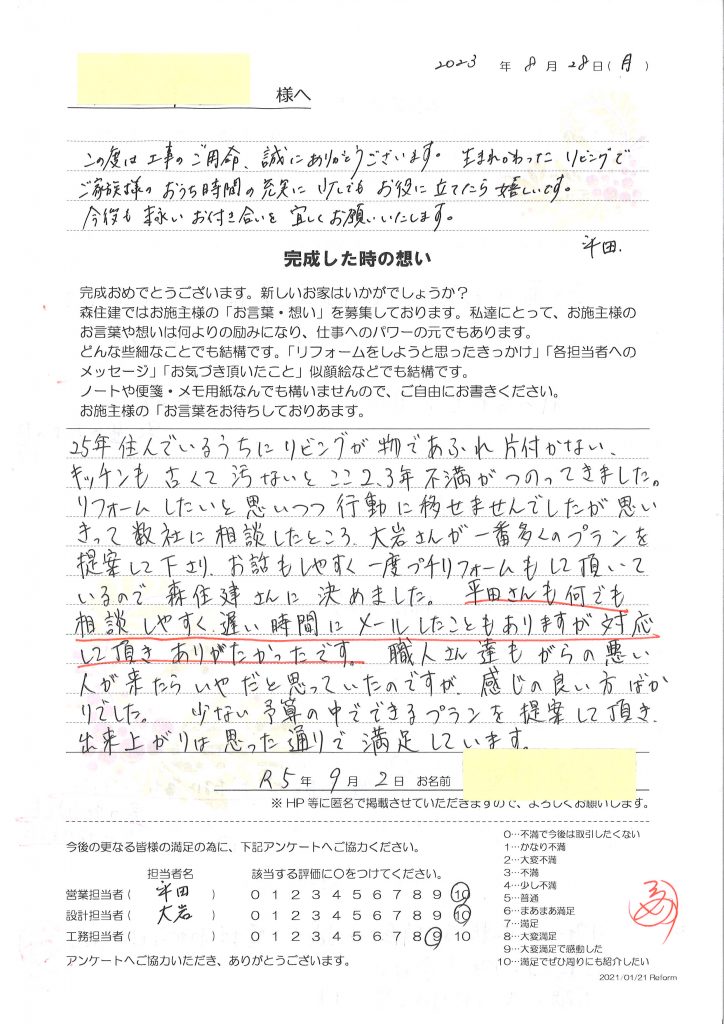 2023 年 8 月 28 日 ( 月 )
様へ
この度は工事のご用命、誠にありがとうございます。 生まれかわったリビングで
ご家族様のおうち時間の充実に少しでもお役に立てたら嬉しいです。
今後も末永いお付き合いを宜しくお願いいたします。
平田.
完成した時の想い
完成おめでとうございます。新しいお家はいかがでしょうか？
森住建ではお施主様の「お言葉・想い」を募集しております。私達にとって、お施主様の
お言葉や想いは何よりの励みになり、仕事へのパワーの元でもあります。
どんな些細なことでも結構です。「リフォームをしようと思ったきっかけ」「各担当者への
メッセージ」「お気づき頂いたこと」似顔絵などでも結構です。
ノートや便箋・メモ用紙なんでも構いませんので、ご自由にお書きください。
お施主様の「お言葉をお待ちしておりあます。
25年住んでいるうちにリビングが物であふれ片付かない、
キッチンも古くて汚ないとここ2,3年不満がつのってきました。
リフォームしたいと思いつつ行動に移せませんでしたが思い
きって数社に相談したところ、大岩さんが一番多くのプランを
提案して下さり、お話もしやすく一度プチリフォームもして頂いて
いるので森住建さんに決めました。 平田さんも何でも
相談しやすく、遅い時間にメールしたこともありますが対応
して頂きありがたかったです。 職人さん達もがらの悪い
人が来たらいやだと思っていたのですが、感じの良い方ばか
りでした。 少ない予算の中でできるプランを提案して頂き、
出来上がりは思った通りで満足しています。
R5 年 9 月 2 日 お名前
※HP等に匿名で掲載させていただきますので、よろしくお願いします。
今後の更なる皆様の満足の為に、下記アンケートへご協力ください。
担当者名 該当する評価に○をつけてください。
営業担当者( 平田 ) 0 1 2 3 4 5 6 7 8 9 10
設計担当者( 大岩 ) 0 1 2 3 4 5 6 7 8 9 10
工務担当者( ) 0 1 2 3 4 5 6 7 8 9 10
アンケートへご協力いただき、ありがとうございます。
0…不満で今後は取引したくない
1…かなり不満
2…大変不満
3…不満
4…少し不満
5…普通
6…まあまあ満足
7…満足
8…大変満足
9…大変満足で感動した
10…満足でぜひ周りにも紹介したい
2021/01/21 Reform